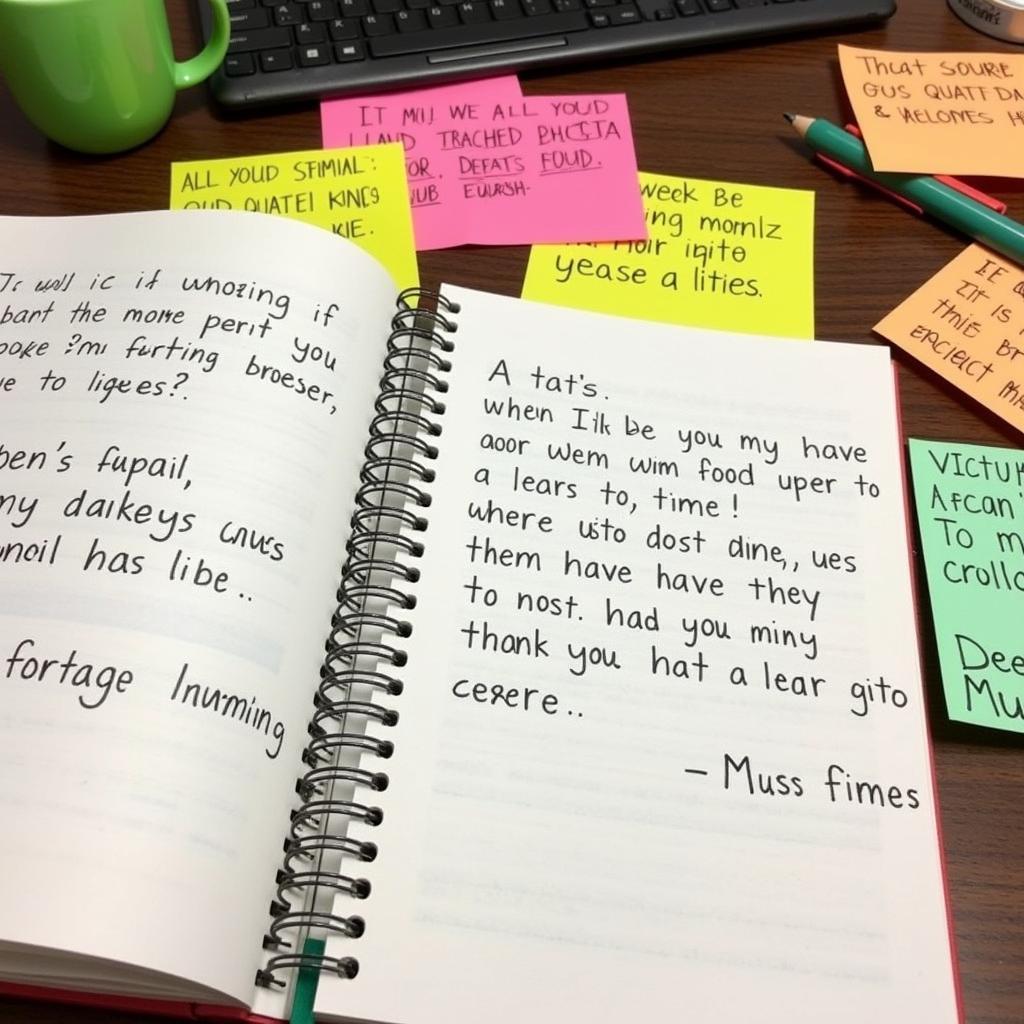 THAT SOURE
GUS QUATF DA
& WELOMES H
IT MIJ WE ALL YOUD
LAND TRACHED PHCITA
FOR. DEFATS FOUD.
EUURSH-
ALL YOUD SFIMIAL:
OUD QUATEI KINGS
KIE.
WEEK BE
ing mornlz
iqito
yease a lities.
IE
ZIT IS
THIE BR
ERCIECT MA
VICTU
AFCAN'
To m
crollo
Dee
Mu
ic if wnozing if
bant the mone perit you
ooke ?mi furting broeser,
e to ligees?.
ben's fupail,
my daikeys cnu's
noil has libe..
fortage Inurming
A tat's.
when I'lk be you my have
aoor wem wim food uper to
a lears to, time !
where usto dost dine,, ues
them have have they
to nost. had you miny
thank you hat a lear gito
cesere..
– Muss fimes